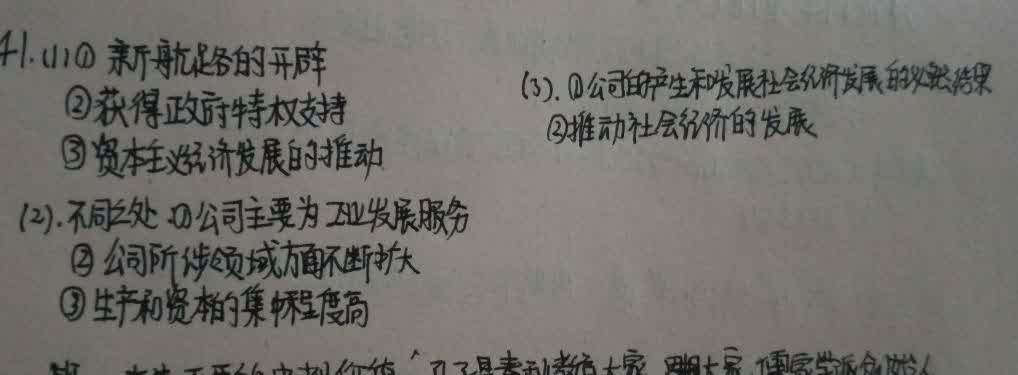 41.(1)① 新航路的开辟
②获得政府特权支持
③资本主义经济发展的推动
(2).不同之处 ①公司主要为工业发展服务
②公司所涉领域方面不断扩大
③生产和资本的集中程度高
(3).①公司的产生和发展社会经济发展的必然结果
②推动社会经济的发展